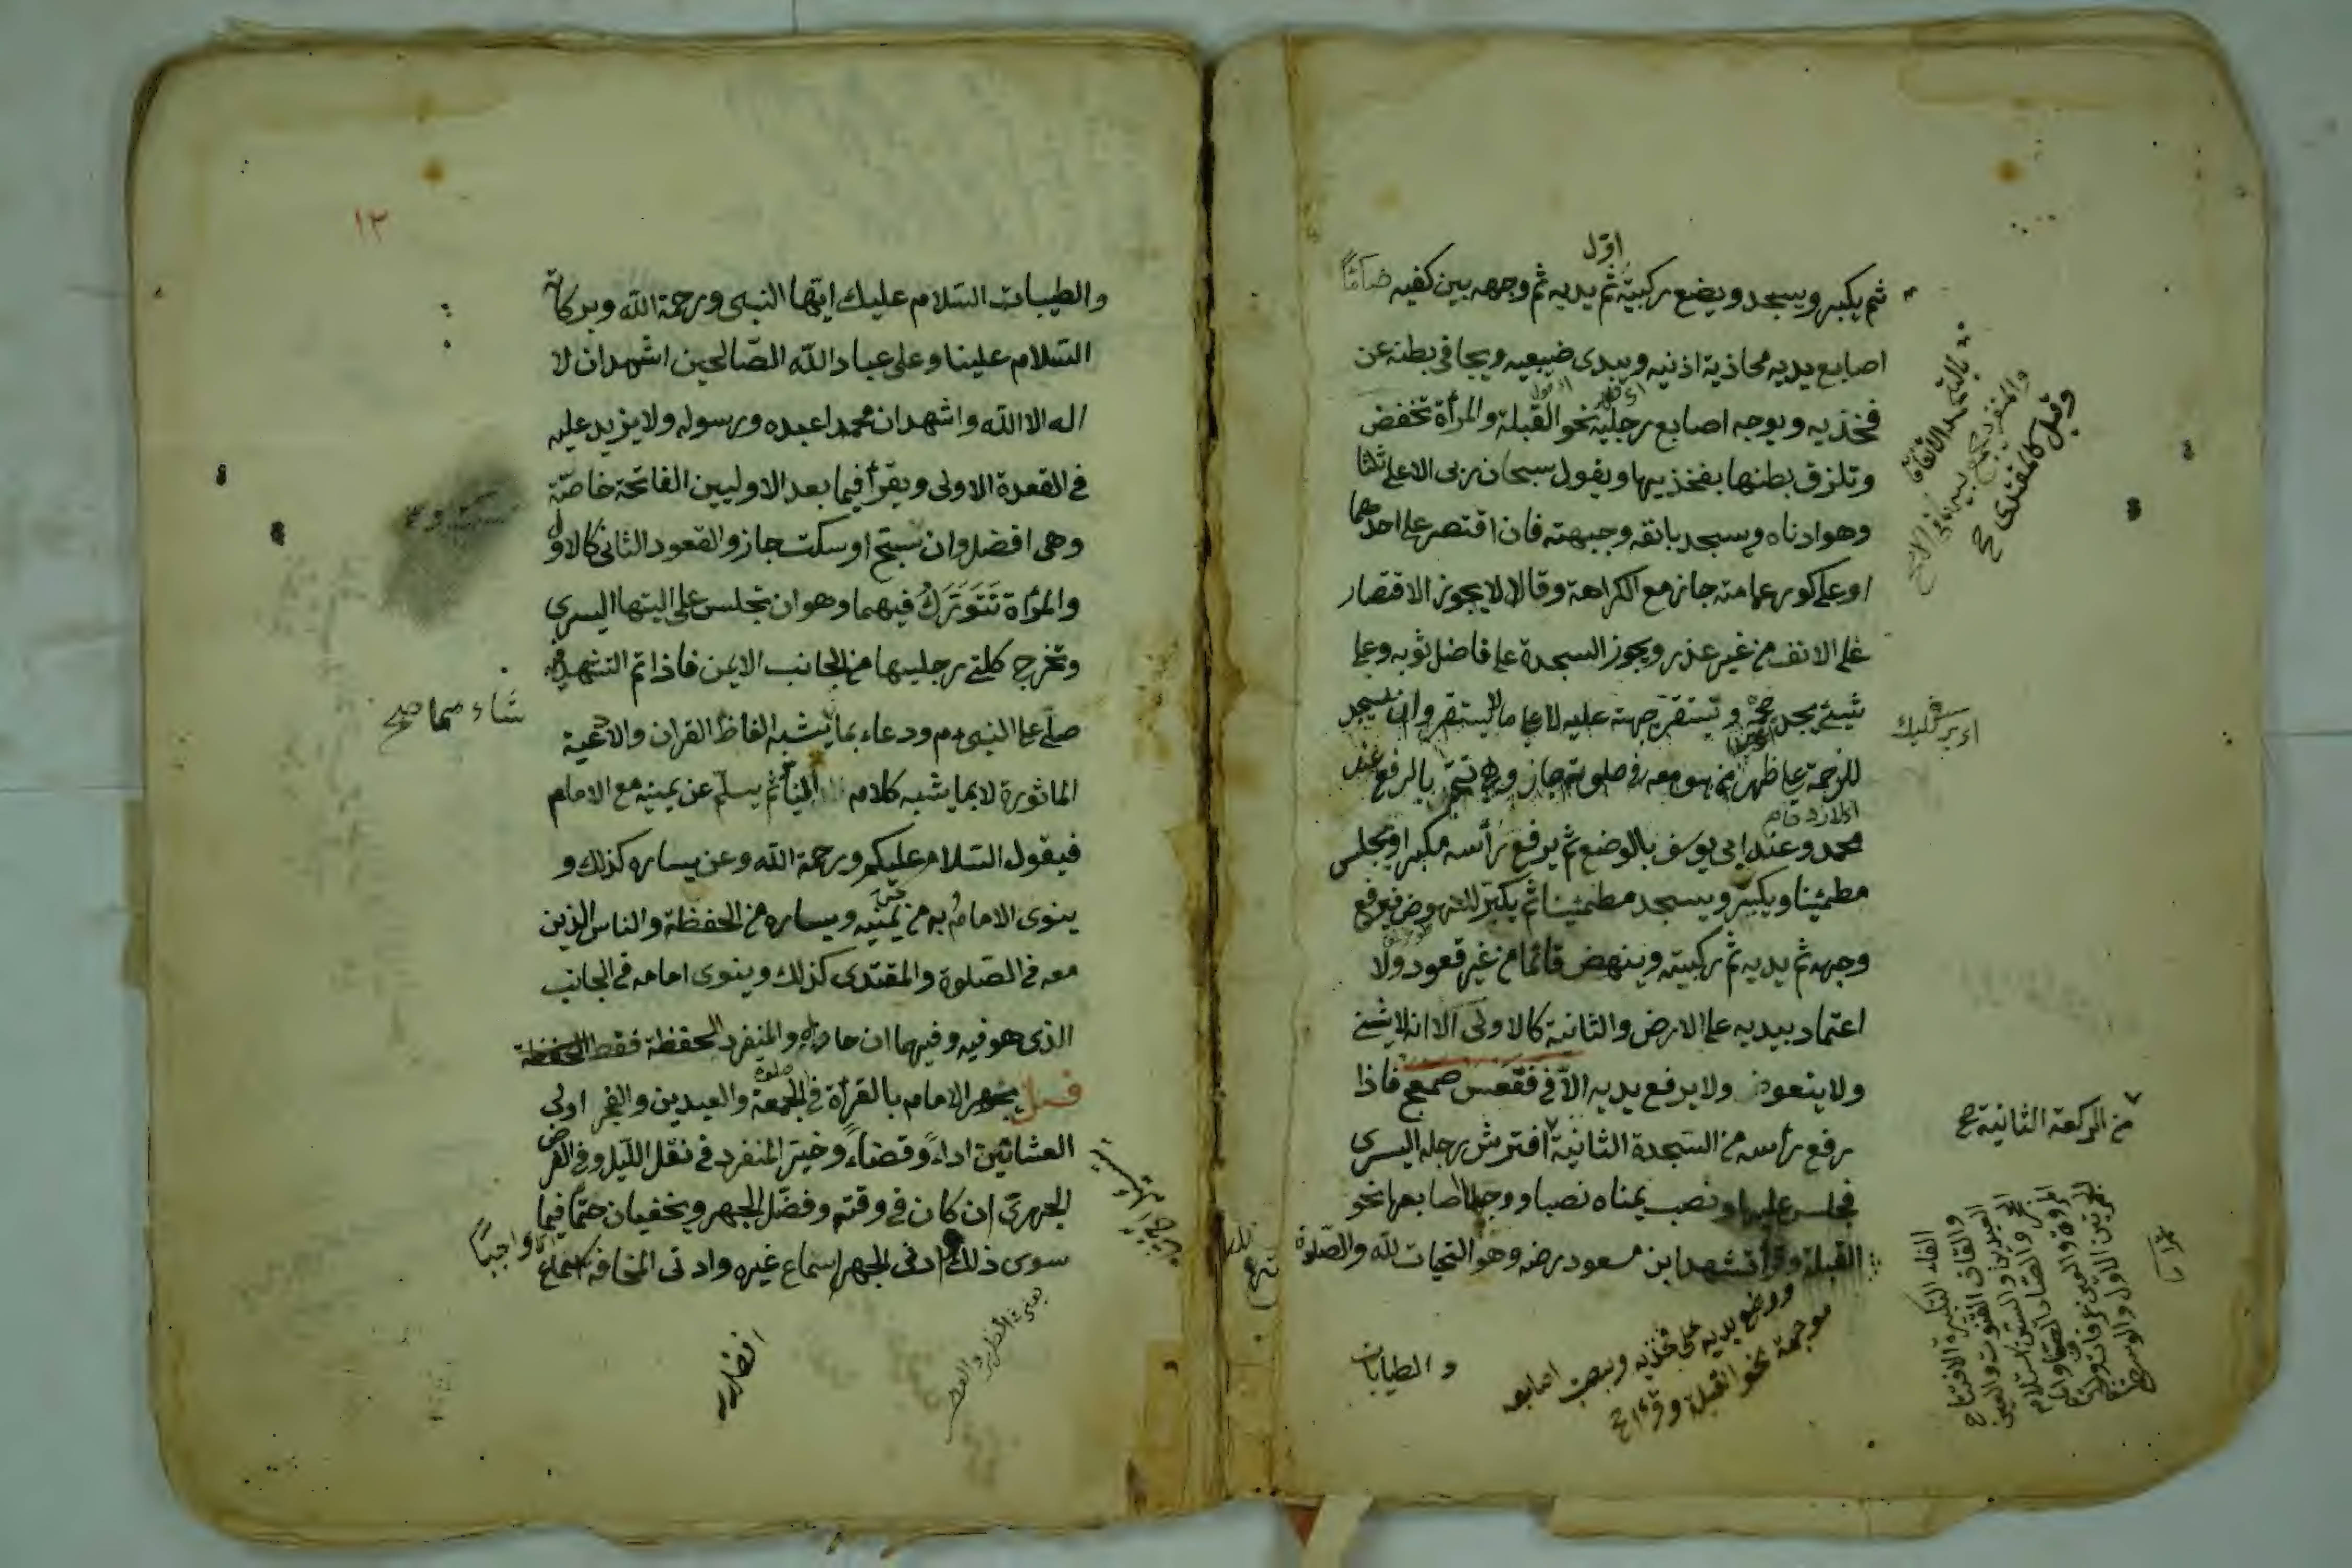 اوّل
ثم يكبر ويسجد ويضع ركبتيه ثم يديه ثم وجهه بين كفيه ضامّاً
اصابع يديه محاذية اذنيه ويبدى ضبعيه ويجافى بطنه عن
فخذيه ويوجه اصابع رجليه نحو القبلة والمرأة تخفض
وتلزق بطنها بفخذيها ويقول سبحان ربى الاعلى ثلثا
وهو ادناه ويسجد بانفه وجبهته فان اقتصر على احدهما
او على كور عمامته جاز مع الكراهة وقالا لا يجوز الاقتصار
على الانف من غير عذر ويجوز السجدة على فاضل ثوبه وعلى
شيئ يجد حجمه وتستقر جبهته عليه لا على ما لا يستقر وان سجد
للزحمة على ظهر من هو معه فى صلوته جاز وهى تتم بالرفع عند
محمد وعند ابى يوسف بالوضع ثم يرفع رأسه مكبرا ويجلس
مطمئنا ويكبر ويسجد مطمئنا ثم يكبر للنهوض فيرفع
وجهه ثم يديه ثم ركبتيه وينهض قائما من غير قعود ولا
اعتماد بيديه على الارض والثانية كالاولى الا انه لا يثنى
ولا يتعوذ ولا يرفع يديه الا فى فقعس صمعج فاذا
رفع رأسه من السجدة الثانية افترش رجله اليسرى
فجلس عليها ونصب يمناه نصبا ووجه اصابعها نحو
القبلة وقرأ تشهد ابن مسعود رضه وهو التحيات لله والصلوة
ووضع يديه على فخذيه وبسط اصابعه
موجهة نحو القبلة وقرأ صح
والطيبات
وقيل كالمقتدى صح
من الركعة الثانية صح
١٢
والطيبات السّلام عليك ايّها النبى ورحمة الله وبركاته
السّلام علينا وعلى عباد الله الصّالحين اشهد ان لا
اله الا الله واشهد ان محمدا عبده ورسوله ولا يزيد عليه
فى القعدة الاولى ويقرأ فيما بعد الاوليين الفاتحة خاصّة
وهى افضل وان سبّح او سكت جاز والقعود الثانى كالاول
والمرأة تَتَوَرَّكُ فيهما وهو ان تجلس على اليتها اليسرى
وتخرج كلتى رجليها من الجانب الايمن فاذا تم التشهد فيه
صلّى على النبى م ودعاء بما يشبه الفاظ القران والادعية
الماثورة لا بما يشبه كلام النّاس ثم يسلّم عن يمينه مع الامام
فيقول السّلام عليكم ورحمة الله وعن يساره كذلك و
ينوى الامام به من يمينه ويساره من الحفظة والناس الذين
معه فى الصّلوة والمقتدى كذلك وينوى امامه فى الجانب
الذى هو فيه وفيهما ان حاذاه والمنفرد الحفظة فقط
فصل يجهر الامام بالقرأة فى الجمعة والعيدين والفجر اولى
العشائين اداءً وقضاءً وخيّر المنفرد فى نفل الليل وفى الفرض
الجهرىّ ان كان فى وقته وفضّل الجهر ويخفيان حتماً فيما
سوى ذلك وادنى الجهر اسماع غيره وادنى المخافة اسماع
واجباً
شاء مما صح
يعنى الظهر والعصر